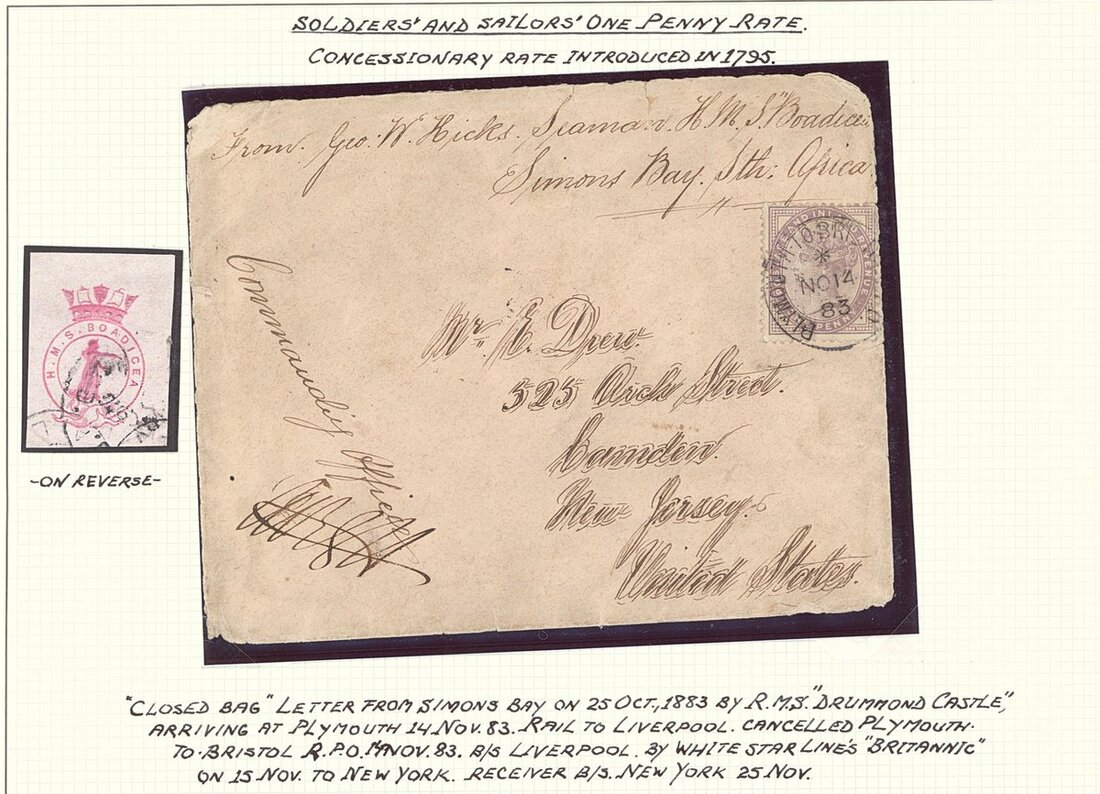 SOLDIERS' AND SAILORS' ONE PENNY RATE.
CONCESSIONARY RATE INTRODUCED IN 1795.
From. Geo. W. Hicks. Seaman. H.M.S. "Boadicea
Simons Bay. Sth: Africa.
PLYMOUTH·TO·BRI
NO 14
83
AND INLAND REVENUE
PENNY
Commanding Officer
Mr. E. Drew.
325 Arch Street.
Camden.
New Jersey.
United States.
H.M.S. BOADICEA
-ON REVERSE-
"CLOSED BAG" LETTER FROM SIMONS BAY ON 25 OCT., 1883 BY R.M.S. "DRUMMOND CASTLE",
ARRIVING AT PLYMOUTH 14 NOV. 83. RAIL TO LIVERPOOL. CANCELLED PLYMOUTH·
TO·BRISTOL R.P.O. 14 NOV. 83. B/S LIVERPOOL. BY WHITE STAR LINE'S "BRITANNIC"
ON 15 NOV. TO NEW YORK. RECEIVER B/S. NEW YORK 25 NOV.